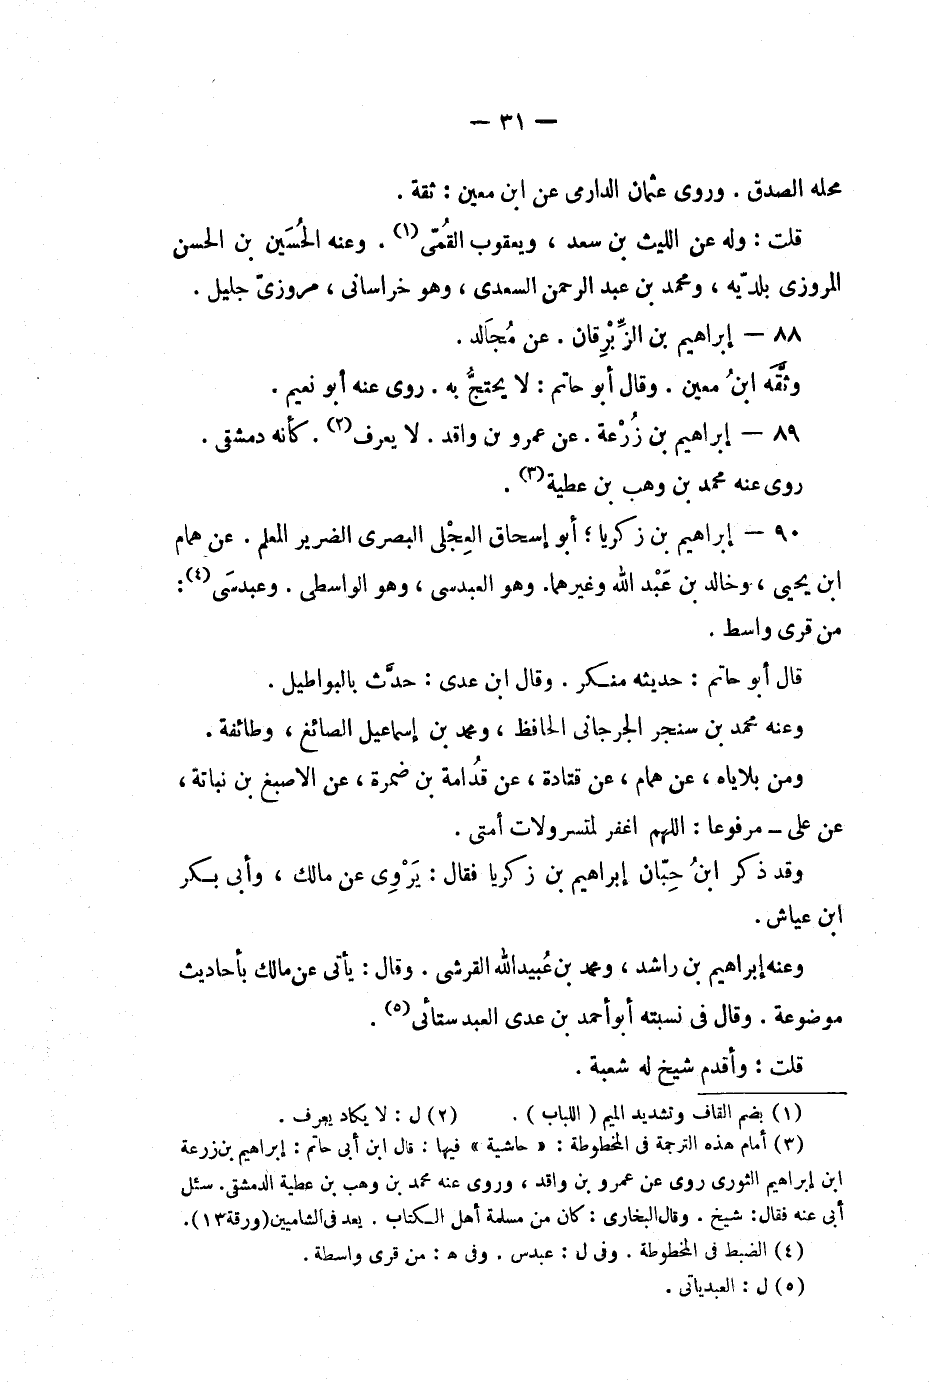 — ٣١ —
محله الصدق . وروى عثمان الدارمى عن ابن معين : ثقة .
قلت : وله عن الليث بن سعد ، ويعقوب القُمّى(١) . وعنه الحُسَين بن الحسن
المروزى بلديّه ، ومحمد بن عبد الرحمن السعدى ، وهو خراسانى ، مروزىّ جليل .
٨٨ — إبراهيم بن الزِّبْرِقان . عن مُجَالد .
وثَّقَه ابنُ معين . وقال أبو حاتم : لا يحتجُّ به . روى عنه أبو نعيم .
٨٩ — إبراهيم بن زُرْعة . عن عمرو بن واقد . لا يعرف(٢) . كأنه دمشقى .
روى عنه محمد بن وهب بن عطية(٣) .
٩٠ — إبراهيم بن زكريا ؛ أبو إسحاق العِجْلى البصرى الضرير المعلم . عن همام
ابن يحيى ، وخالد بن عَبْد الله وغيرهما. وهو العبدسى ، وهو الواسطى . وعبدسَى(٤):
من قرى واسط .
قال أبو حاتم : حديثه منكر . وقال ابن عدى : حدَّث بالبواطيل .
وعنه محمد بن سنجر الجرجانى الحافظ ، ومحمد بن إسماعيل الصائغ ، وطائفة .
ومن بلاياه ، عن همام ، عن قتادة ، عن قدُامة بن ضمرة ، عن الاصبغ بن نباتة ،
عن على – مرفوعا : اللهم اغفر لمتسرولات أمتى .
وقد ذكر ابنُ حِبّان إبراهيم بن زكريا فقال : يَرْوِى عن مالك ، وأبى بكر
ابن عياش .
وعنه إبراهيم بن راشد ، ومحمد بن عُبيدالله القرشى . وقال : يأتى عن مالك بأحاديث
موضوعة . وقال فى نسبته أبوأحمد بن عدى العبدستأنى(٥) .
قلت : وأقدم شيخ له شعبة .
(١) بضم القاف وتشديد الميم ( اللباب ) . (٢) ل : لا يكاد يعرف .
(٣) أمام هذه الترجمة فى المخطوطة : « حاشية » فيها : قال ابن أبى حاتم : إبراهيم بن زرعة
ابن إبراهيم الثورى روى عن عمرو بن واقد ، وروى عنه محمد بن وهب بن عطية الدمشقى. سئل
أبى عنه فقال: شيخ . وقال البخارى : كان من مسلمة أهل الكتاب . يعد فى الشاميين (ورقة ١٣).
(٤) الضبط فى المخطوطة . وفى ل : عبدس . وفى ه : من قرى واسطة .
(٥) ل : العبدياتى .